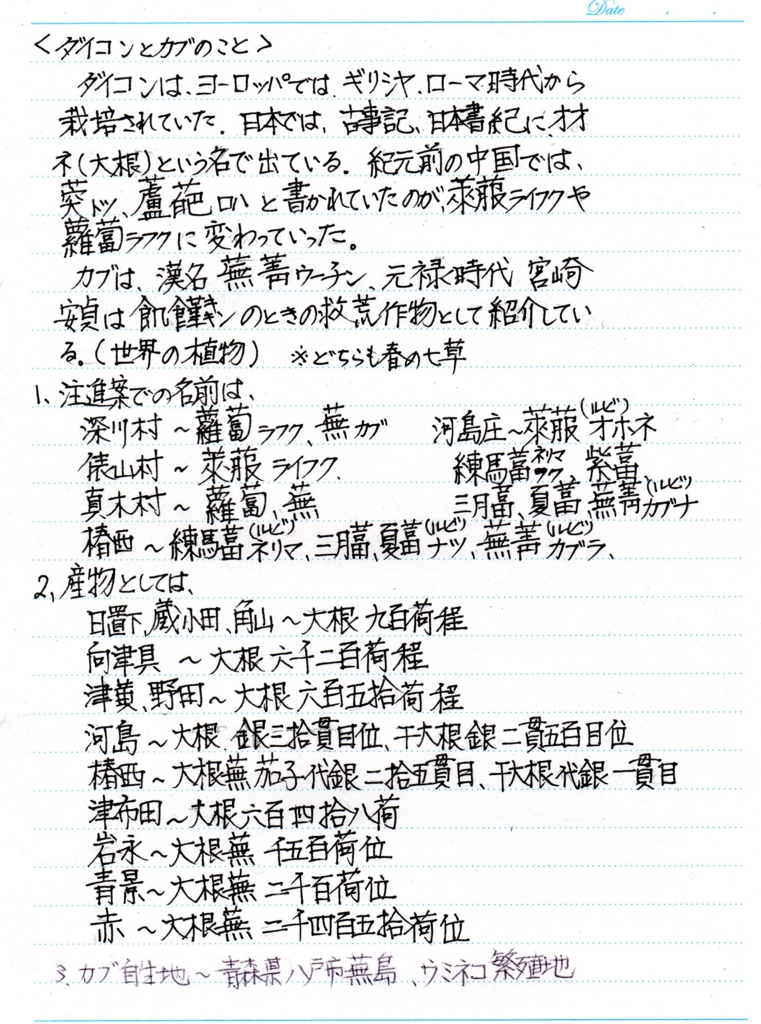 Date . .
<ダイコンとカブのこと>
ダイコンは、ヨーロッパでは、ギリシヤ、ローマ時代から
栽培されていた。日本では、古事記、日本書紀に、オオ
ネ(大根)という名で出ている。紀元前の中国では、
葖トツ、蘆萉ロハ と書かれていたのが、萊菔ライフクや
蘿蔔ラフクに変わっていった。
カブは、漢名 蕪菁ウーチン、元禄時代 宮崎
安貞は飢饉キキンのときの救荒作物として紹介してい
る。(世界の植物) ※どちらも春の七草
1、注進案での名前は、
深川村～蘿蔔ラフク、蕪カブ 河島庄～萊菔(ルビ)オホネ
俵山村～萊菔ライフク 練馬蔔ネリマフク、紫蔔
真木村～蘿蔔、蕪 三月蔔、夏蔔、蕪菁(ルビ)カブナ
椿西～練馬蔔(ルビ)ネリマ、三月蔔、夏蔔(ルビ)ナツ、蕪菁(ルビ)カブラ、
2、産物としては、
日置下、蔵小田、角山～大根 九百荷程
向津具 ～大根 六千二百荷程
津黄、野田～大根 六百五拾荷程
河島～大根、銀三拾貫目位、干大根銀二貫五百目位
椿西～大根蕪茄子代銀二拾五貫目、干大根代銀一貫目
津布田～大根六百四拾八荷
岩永～大根蕪 千五百荷位
青景～大根蕪 二千百荷位
赤 ～大根蕪 二千四百五拾荷位
3、カブ自生地～青森県八戸市蕪島、ウミネコ繁殖地